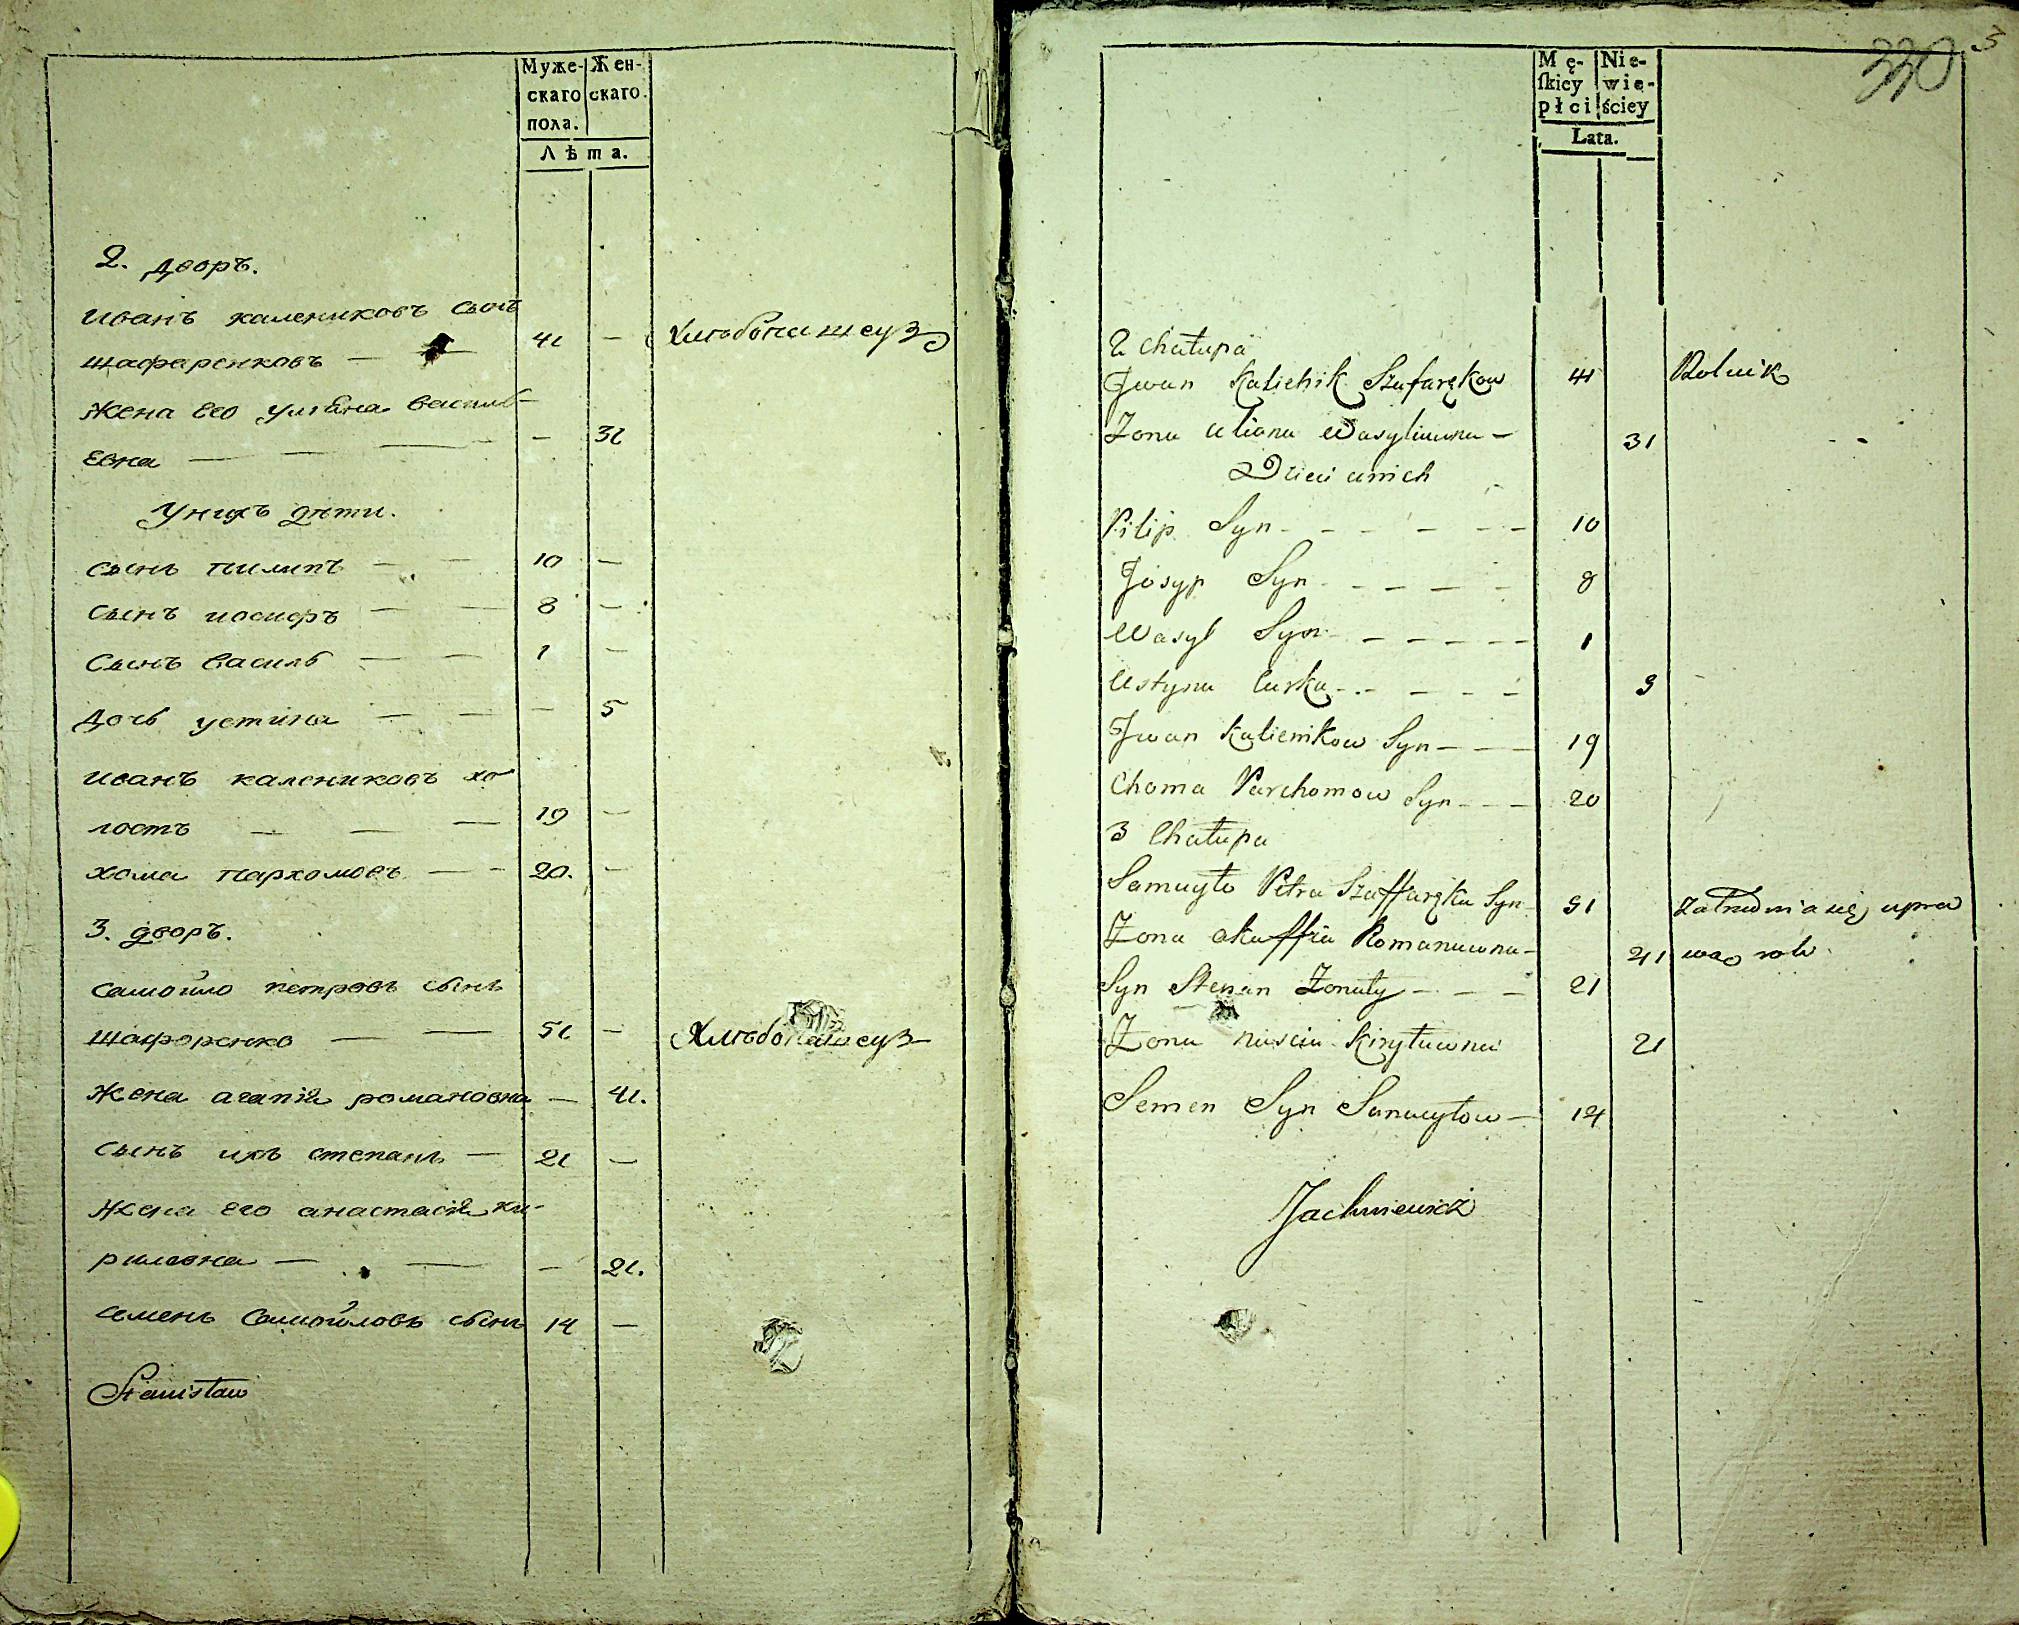 Муже-
скаго
пола.
Жен-
скаго.
Лѣта.
2. дворъ.
иванъ калениковъ сынъ
шафаренковъ — — 41 — хлѣбопашецъ
жена его уліяна василь-
евна — — — — 31
у нихъ дѣти.
сынъ пилипъ — — 10 —
сынъ иосифъ — — 8 —
сынъ василь — — 1 —
дочь устина — — — 5
иванъ калениковъ хо
лостъ — — — 19 —
хома пархомовъ — - 20. —
3. дворъ.
самойло петровъ сынъ
шафоренко — — 51 — Хлѣбопашецъ
жена агапія романовна — 41.
сынъ ихъ степанъ — 21 —
жена его анастасія ки-
риловна — — — 21.
семенъ самойловъ сынъ 14 —
Stanisław
330 5
Mę-
ſkiey
płci
Nie-
wie-
ściey
Lata.
2 chałupa
Jwan Kalienik Szafarękow 41 Rolnik
Zona Uliana Wasyliuwna — 31
Dzieci u nich
Pilip Syn - - - - - 10
Josyp Syn - - - - - 8
Wasyl Syn - - - - - 1
Ustyna Curka - - - - - 5
Jwan Kalienikow Syn - - - 19
Choma Parchomow Syn - - - 20
3 Chałupa
Samuyło Petra Szaffaręka Syn 51 Zatrudnia się upra
Zona Akaffia Romanuwna - 41 wao roli
Syn Stepan Zonaty - - - 21
Zona nascia Kiryłuwna 21
Semen Syn Samuyłow — 14
Jachniewicz